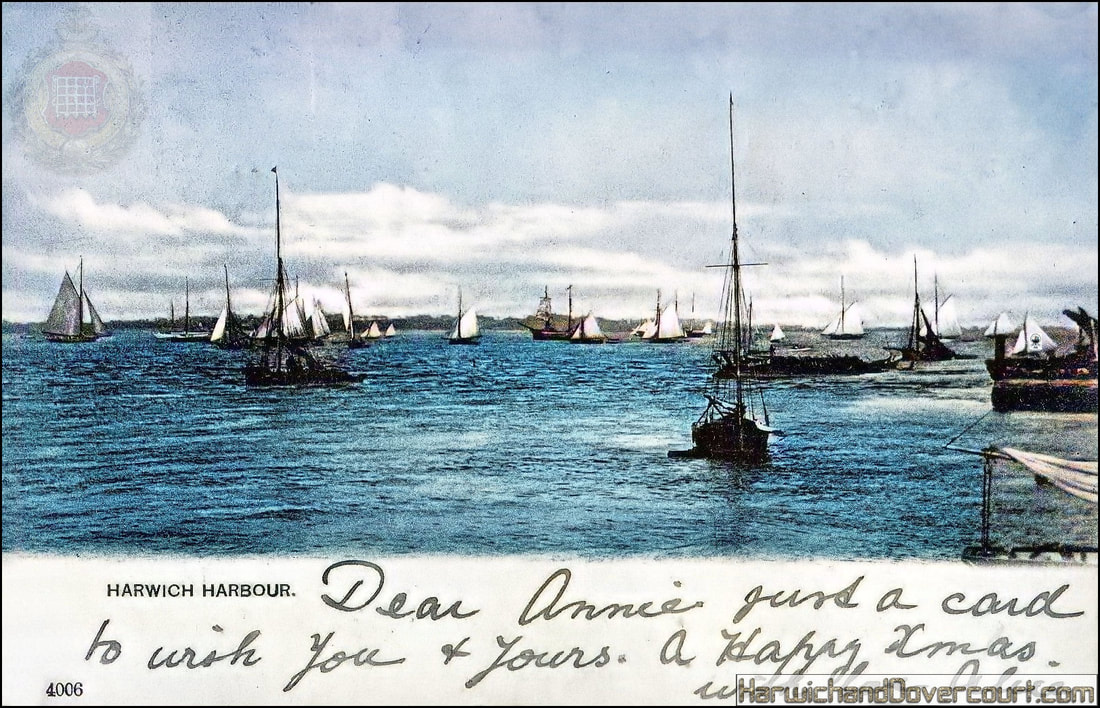 HARWICH HARBOUR.
Dear Annie just a card
to wish You & Yours. A Happy Xmas.
4006
HarwichandDovercourt.com